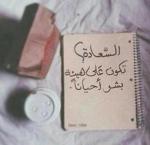 السَّعادة
تكون على هيئة
بشر أحياناً.